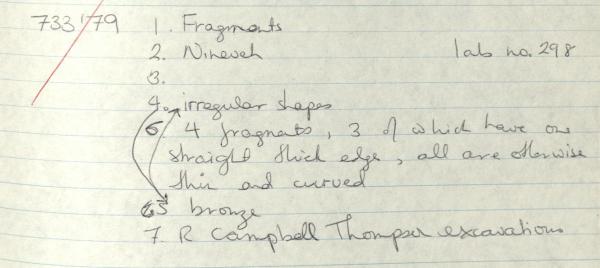 733'79 1. Fragments
2. Nineveh lab no. 298
3.
4. irregular shapes
6 4 fragments, 3 of which have one
straight thick edge, all are otherwise
thin and curved
5 bronze
7 R Campbell Thompson excavations